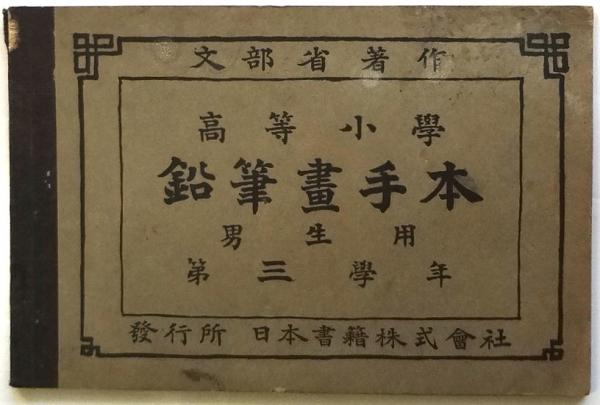 文部省著作
高等小學
鉛筆畫手本
男生用
第三學年
發行所 日本書籍株式會社